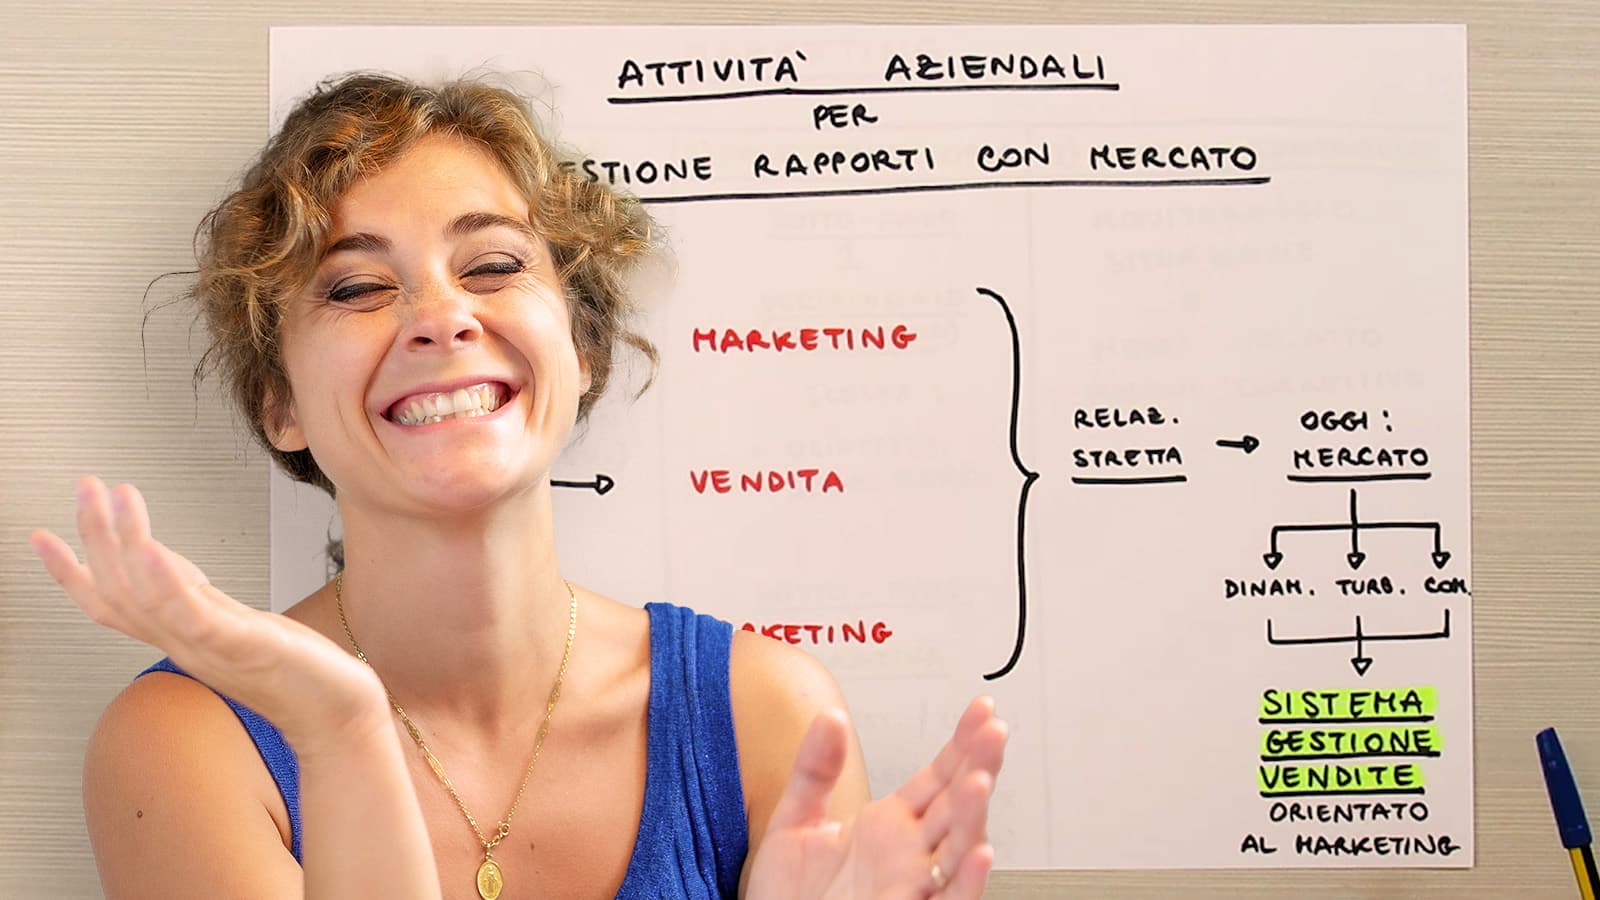 ATTIVITA' AZIENDALI
PER
ESTIONE RAPPORTI CON MERCATO
MARKETING
VENDITA
RKETING
RELAZ.
STRETTA
OGGI:
MERCATO
DINAM. TURB. COM.
SISTEMA
GESTIONE
VENDITE
ORIENTATO
AL MARKETING